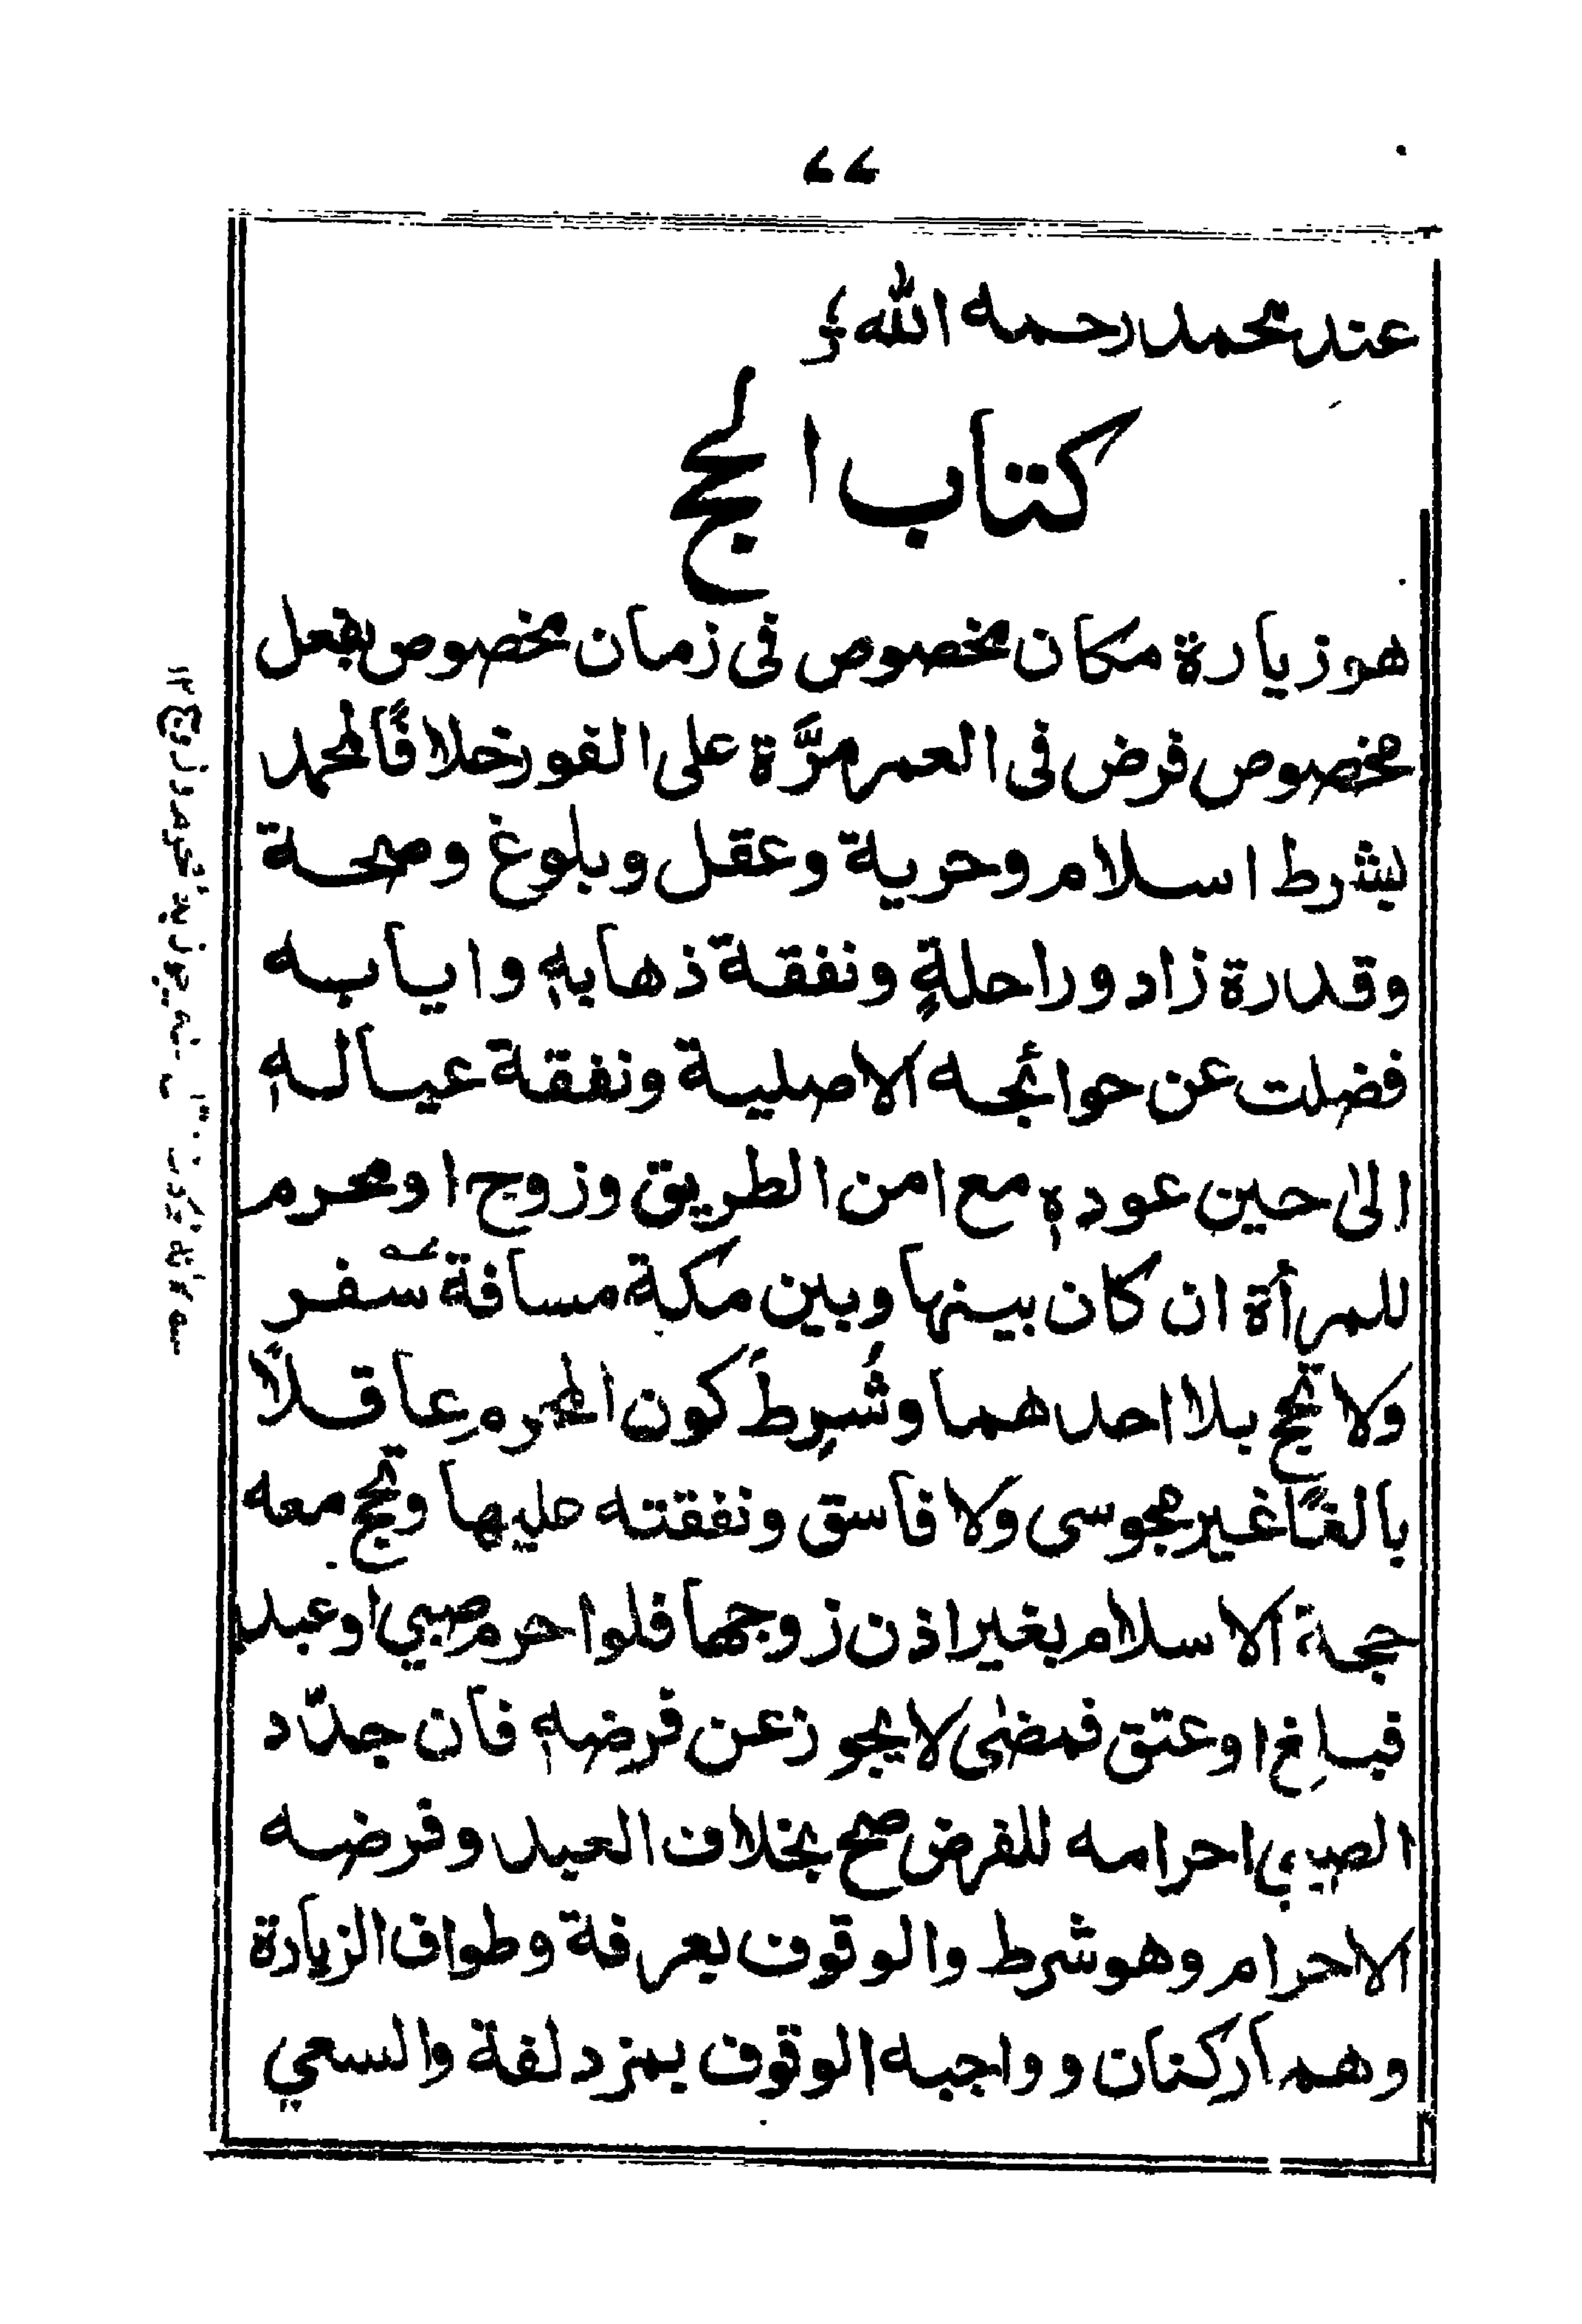 ٦٦
عند محمد رحمه الله
كتاب الحج
هو زيارة مكان مخصوص فى زمان مخصوص بفعل
مخصوص فرض فى العمر مرَّة على الفور خلافًا لمحمد
بشرط اسلام وحرية وعقل وبلوغ وصحة
وقدرة زاد وراحلةٍ ونفقة ذهابهٖ وايابه
فضلت عن حوائجه الاصلية ونفقة عيالهٖ
الىٰ حين عودهٖ مع امن الطريق وزوج او محرم
للمرأة ان كان بينها وبين مكة مسافة سفر
ولا تحج بلا احدهما وشُرِطَ كون المحرم عاقلًا
بالغًا غير مجوسى ولا فاسق ونفقته عليها وتحج معه
حجة الاسلام بغير اذن زوجها فلو احرم صبي او عبد
فبلغ او عتق فمضىٰ لا يجوز عن فرضهٖ فان جدّد
الصبي احرامه للفرض صح بخلاف العبد وفرضه
الاحرام وهو شرط والوقوف بعرفة وطواف الزيارة
وهما ركنان وواجبه الوقوف بمزدلفة والسعي